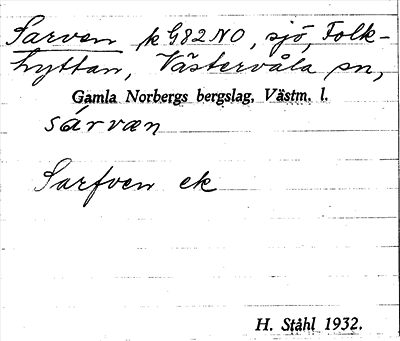 Sarven k G82NO, sjö, Folk-
hyttan, Västervåla sn,
Gamla Norbergs bergslag, Västm. l.
sárvæn
Sarfven ek
H. Ståhl 1932.